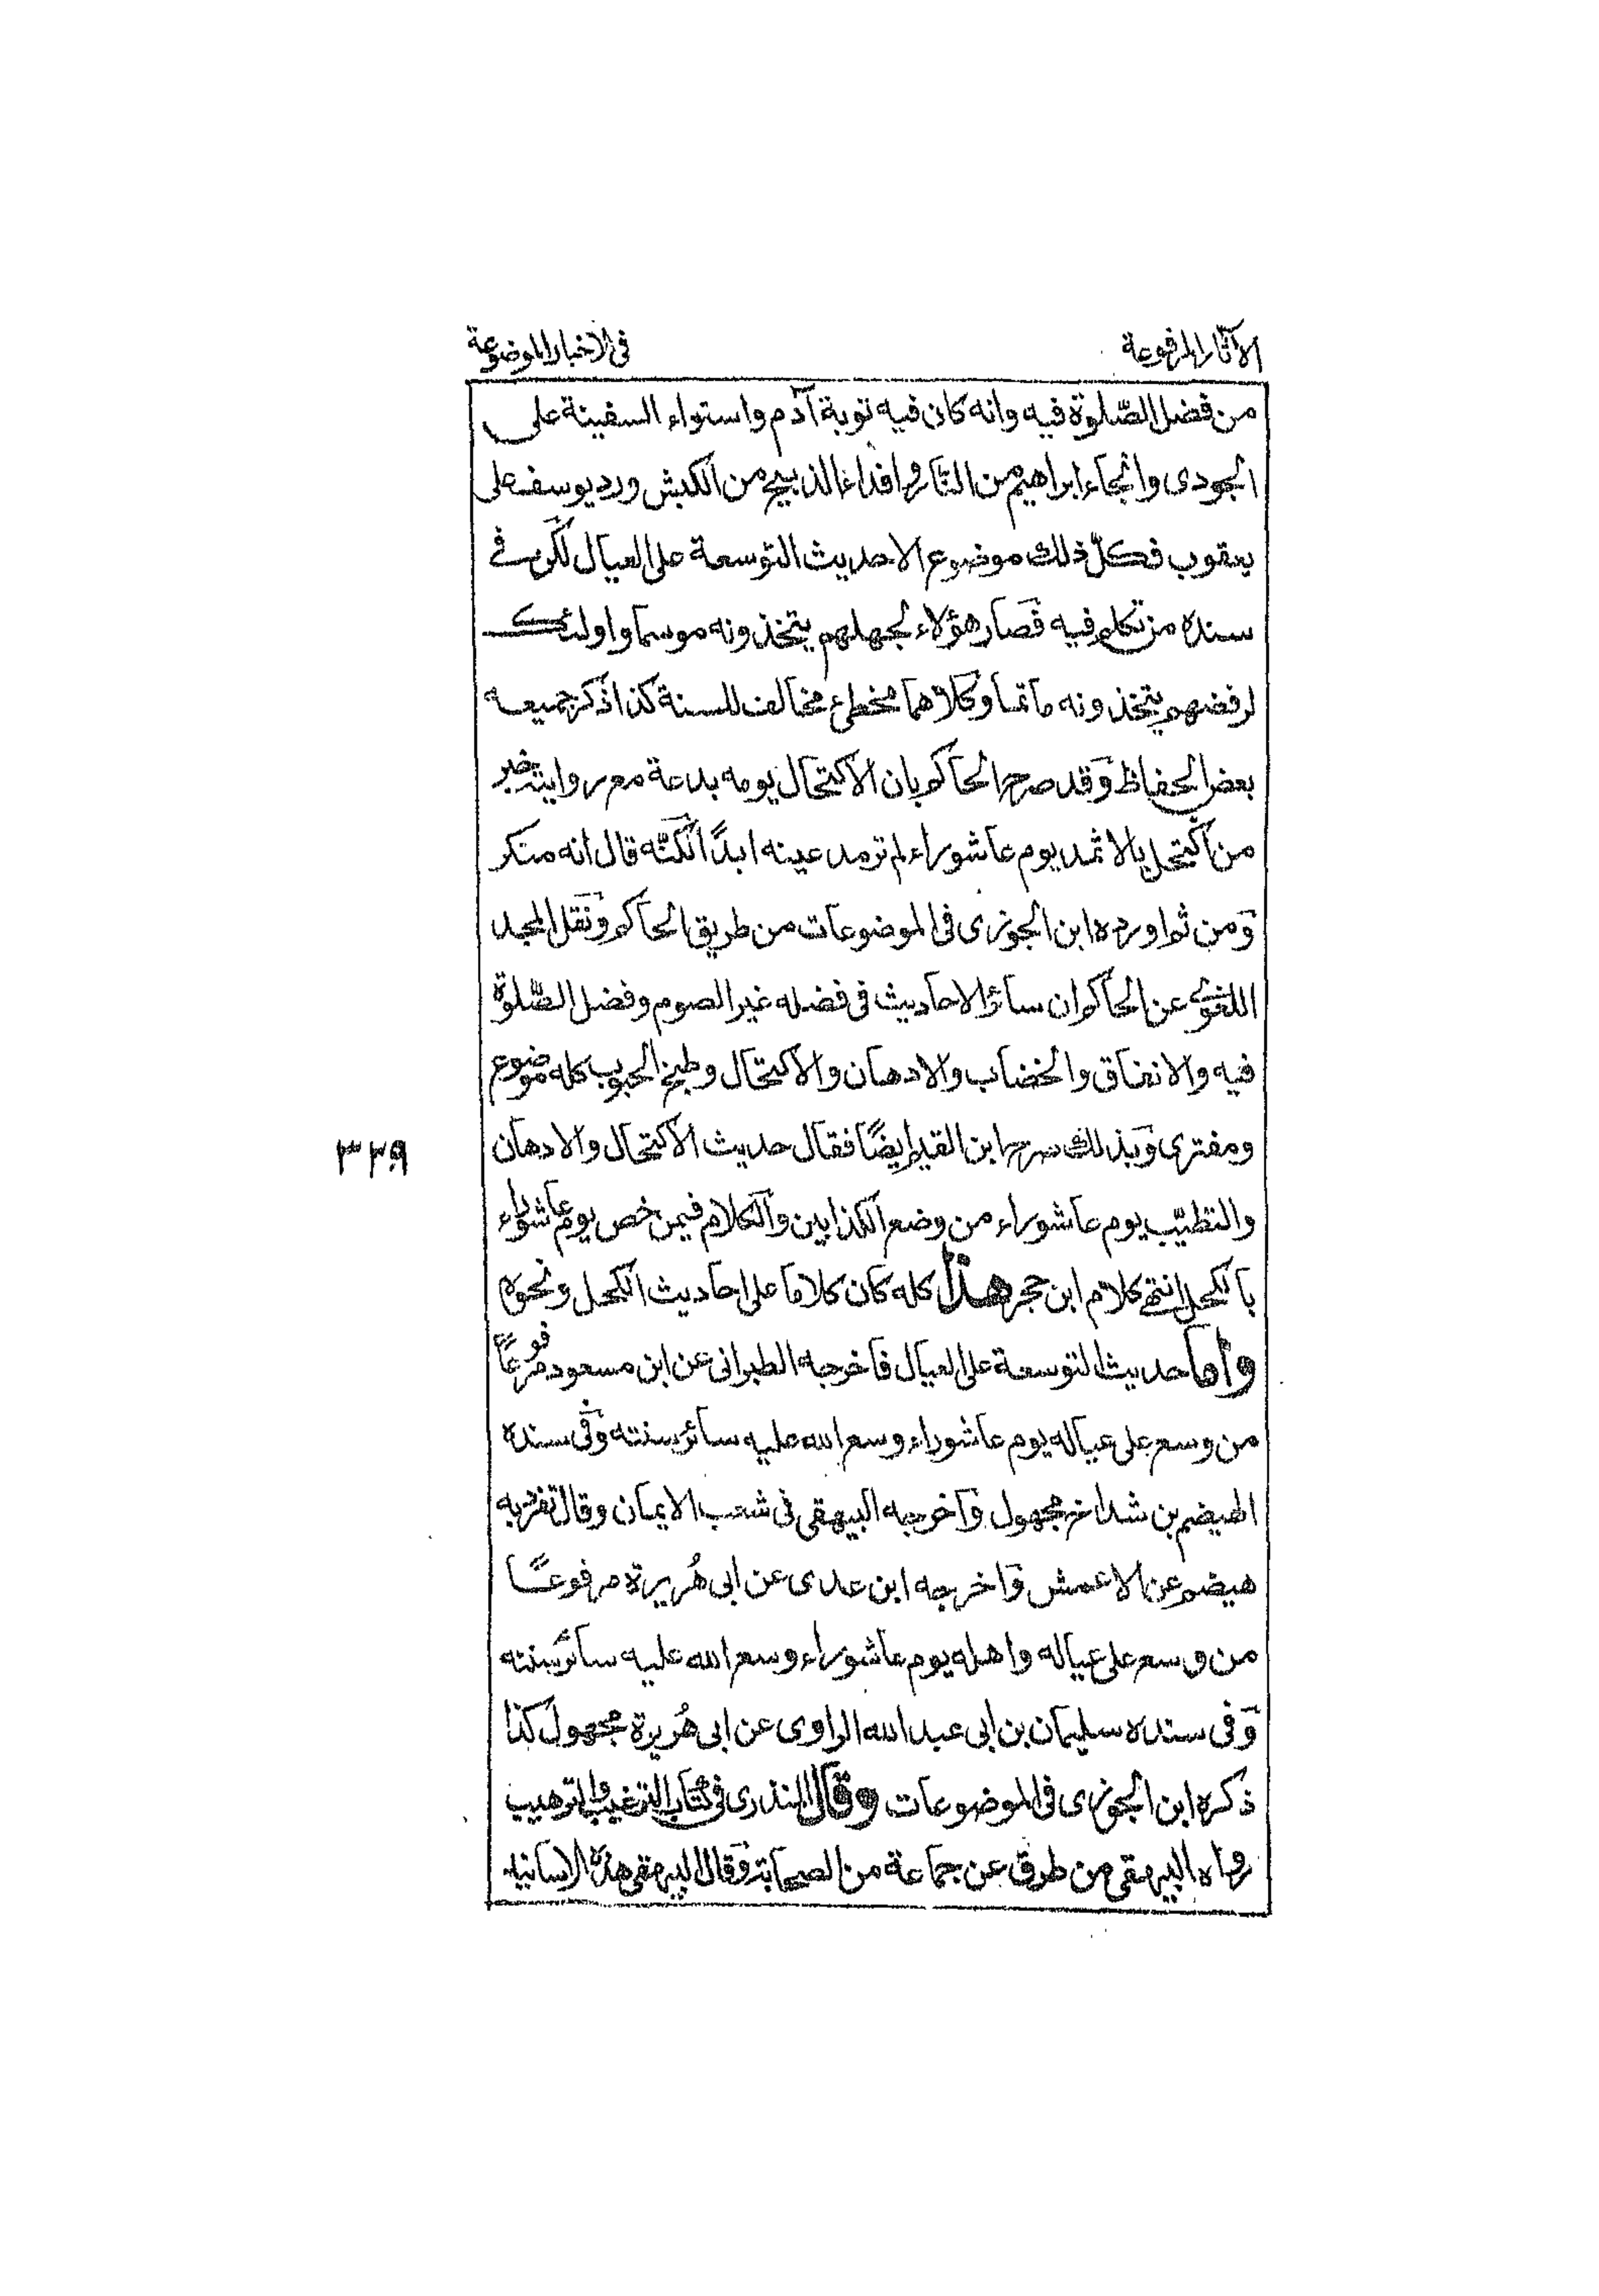 الآثار المرفوعة
في الاخبار الموضوعة
من فضل الصّلوة فيه وانه كان فيه توبة آدم واستواء السفينة على
الجودى وانجاء ابراهيم من النار وافداء الذبيح من الكبش ورد يوسف على
يعقوب فكلّ ذلك موضوع الاحديث التوسعة على العيال لكن في
سنده من تكلم فيه فصار هؤلاء لجهلهم يتخذونه موسما واولئك
لرفضهم يتخذونه ماتما وكلاهما مخطئ مخالف للسنة كذا ذكر جميعه
بعض الحفاظ وقد صرح الحاكم بان الاكتحال يومه بدعة مع روايته خبر
من اكتحل بالاثمد يوم عاشوراء لم ترمد عينه ابدًا لكنّه قال انه منكر
ومن ثم اورده ابن الجوزى فى الموضوعات من طريق الحاكم ونقل المجد
اللغوى عن الحاكم ان سائر الاحاديث فى فضله غير الصوم وفضل الصّلوة
فيه والانفاق والخضاب والادهان والاكتحال وطبخ الحبوب كله موضوع
ومفترى وبذلك صرح ابن القيم ايضًا فقال حديث الاكتحال والادهان
والتطيّب يوم عاشوراء من وضع الكذابين والكلام فيمن خص يوم عاشوراء
بالكحل انتهى كلام ابن حجر هذا كله كان كلاما على احاديث الكحل ونحوه
واما حديث التوسعة على العيال فاخرجه الطبرانى عن ابن مسعود مرفوعًا
من وسع على عياله يوم عاشوراء وسع الله عليه سائر سنته وفى سنده
الهيضم بن شداخ مجهول واخرجه البيهقى فى شعب الايمان وقال تفرد به
هيضم عن الاعمش واخرجه ابن عدى عن ابى هُريرة مرفوعًا
من وسع على عياله واهله يوم عاشوراء وسع الله عليه سائر سنته
وفى سنده سليمان بن ابى عبد الله الراوى عن ابى هُريرة مجهول كذا
ذكره ابن الجوزى فى الموضوعات وقال المنذرى فى كتاب الترغيب والترهيب
رواه البيهقى من طرق عن جماعة من الصحابة وقال البيهقى هذه الاسانيد
٣٢٩